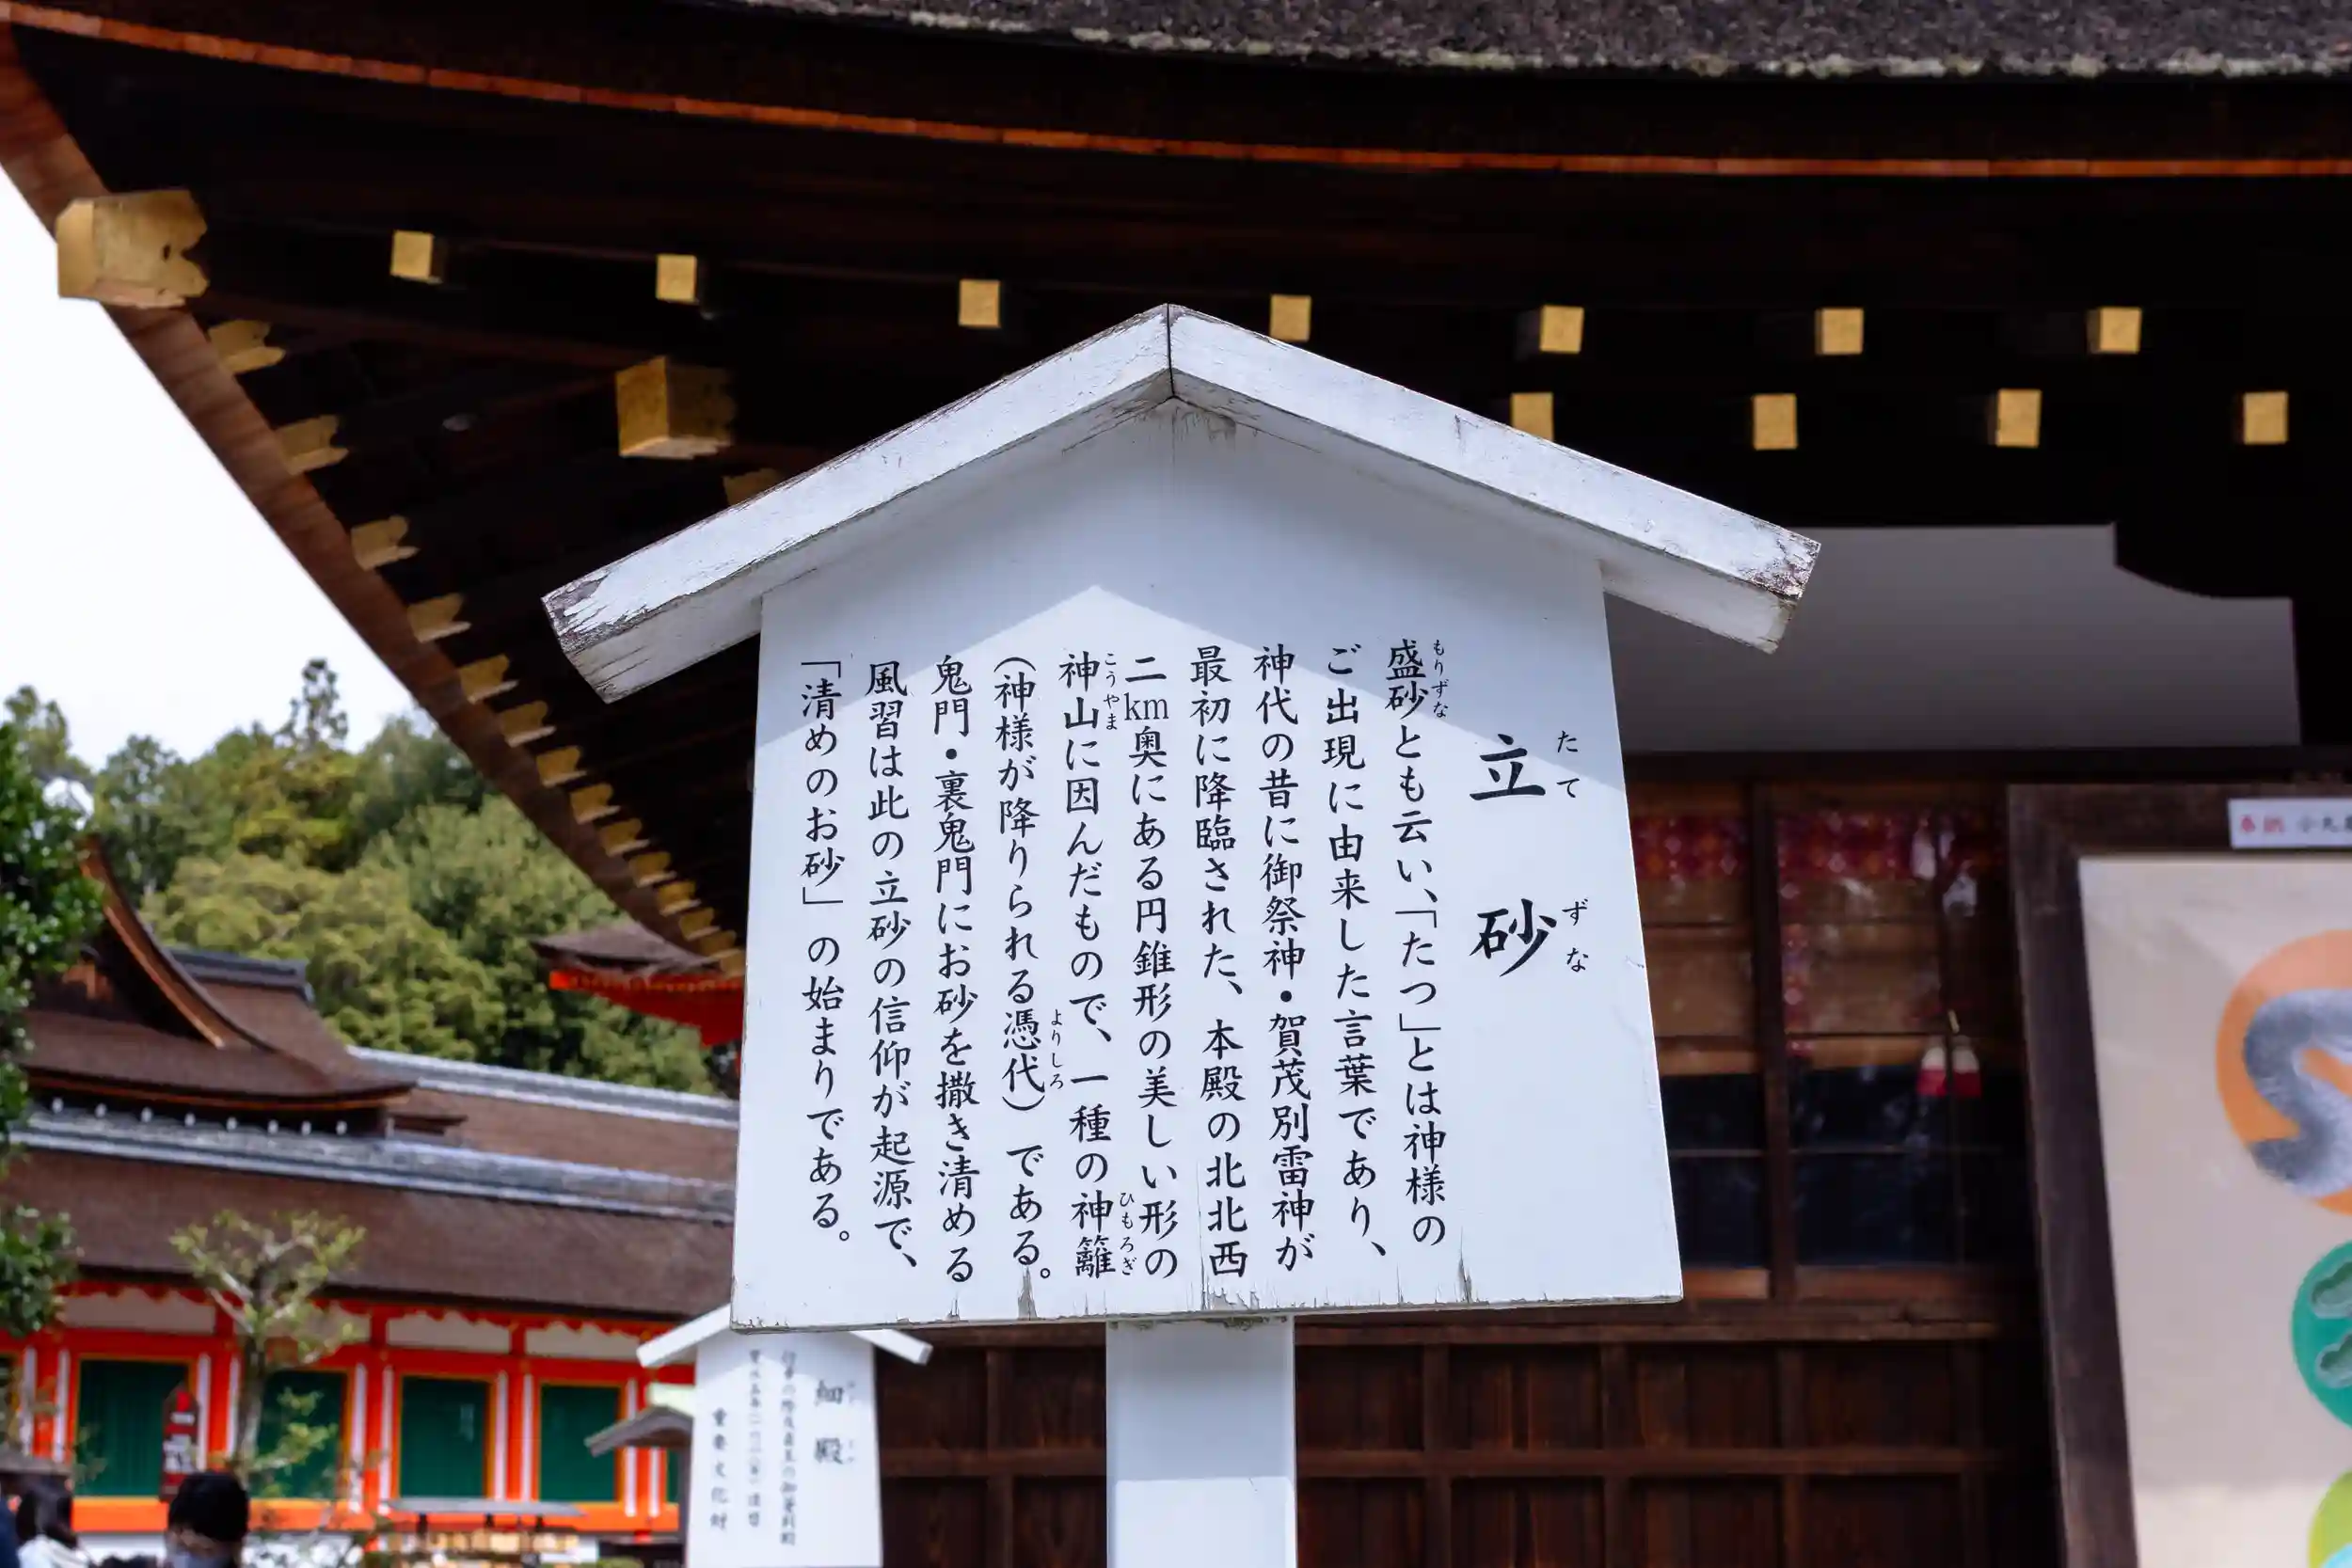 立砂
たてずな
盛砂とも云い、「たつ」とは神様の
もりずな
ご出現に由来した言葉であり、
神代の昔に御祭神・賀茂別雷神が
最初に降臨された、本殿の北北西
二km奥にある円錐形の美しい形の
神山に因んだもので、一種の神籬
こうやま
ひもろぎ
(神様が降りられる憑代)である。
よりしろ
鬼門・裏鬼門にお砂を撒き清める
風習は此の立砂の信仰が起源で、
「清めのお砂」の始まりである。
細殿
重要文化財
奉納